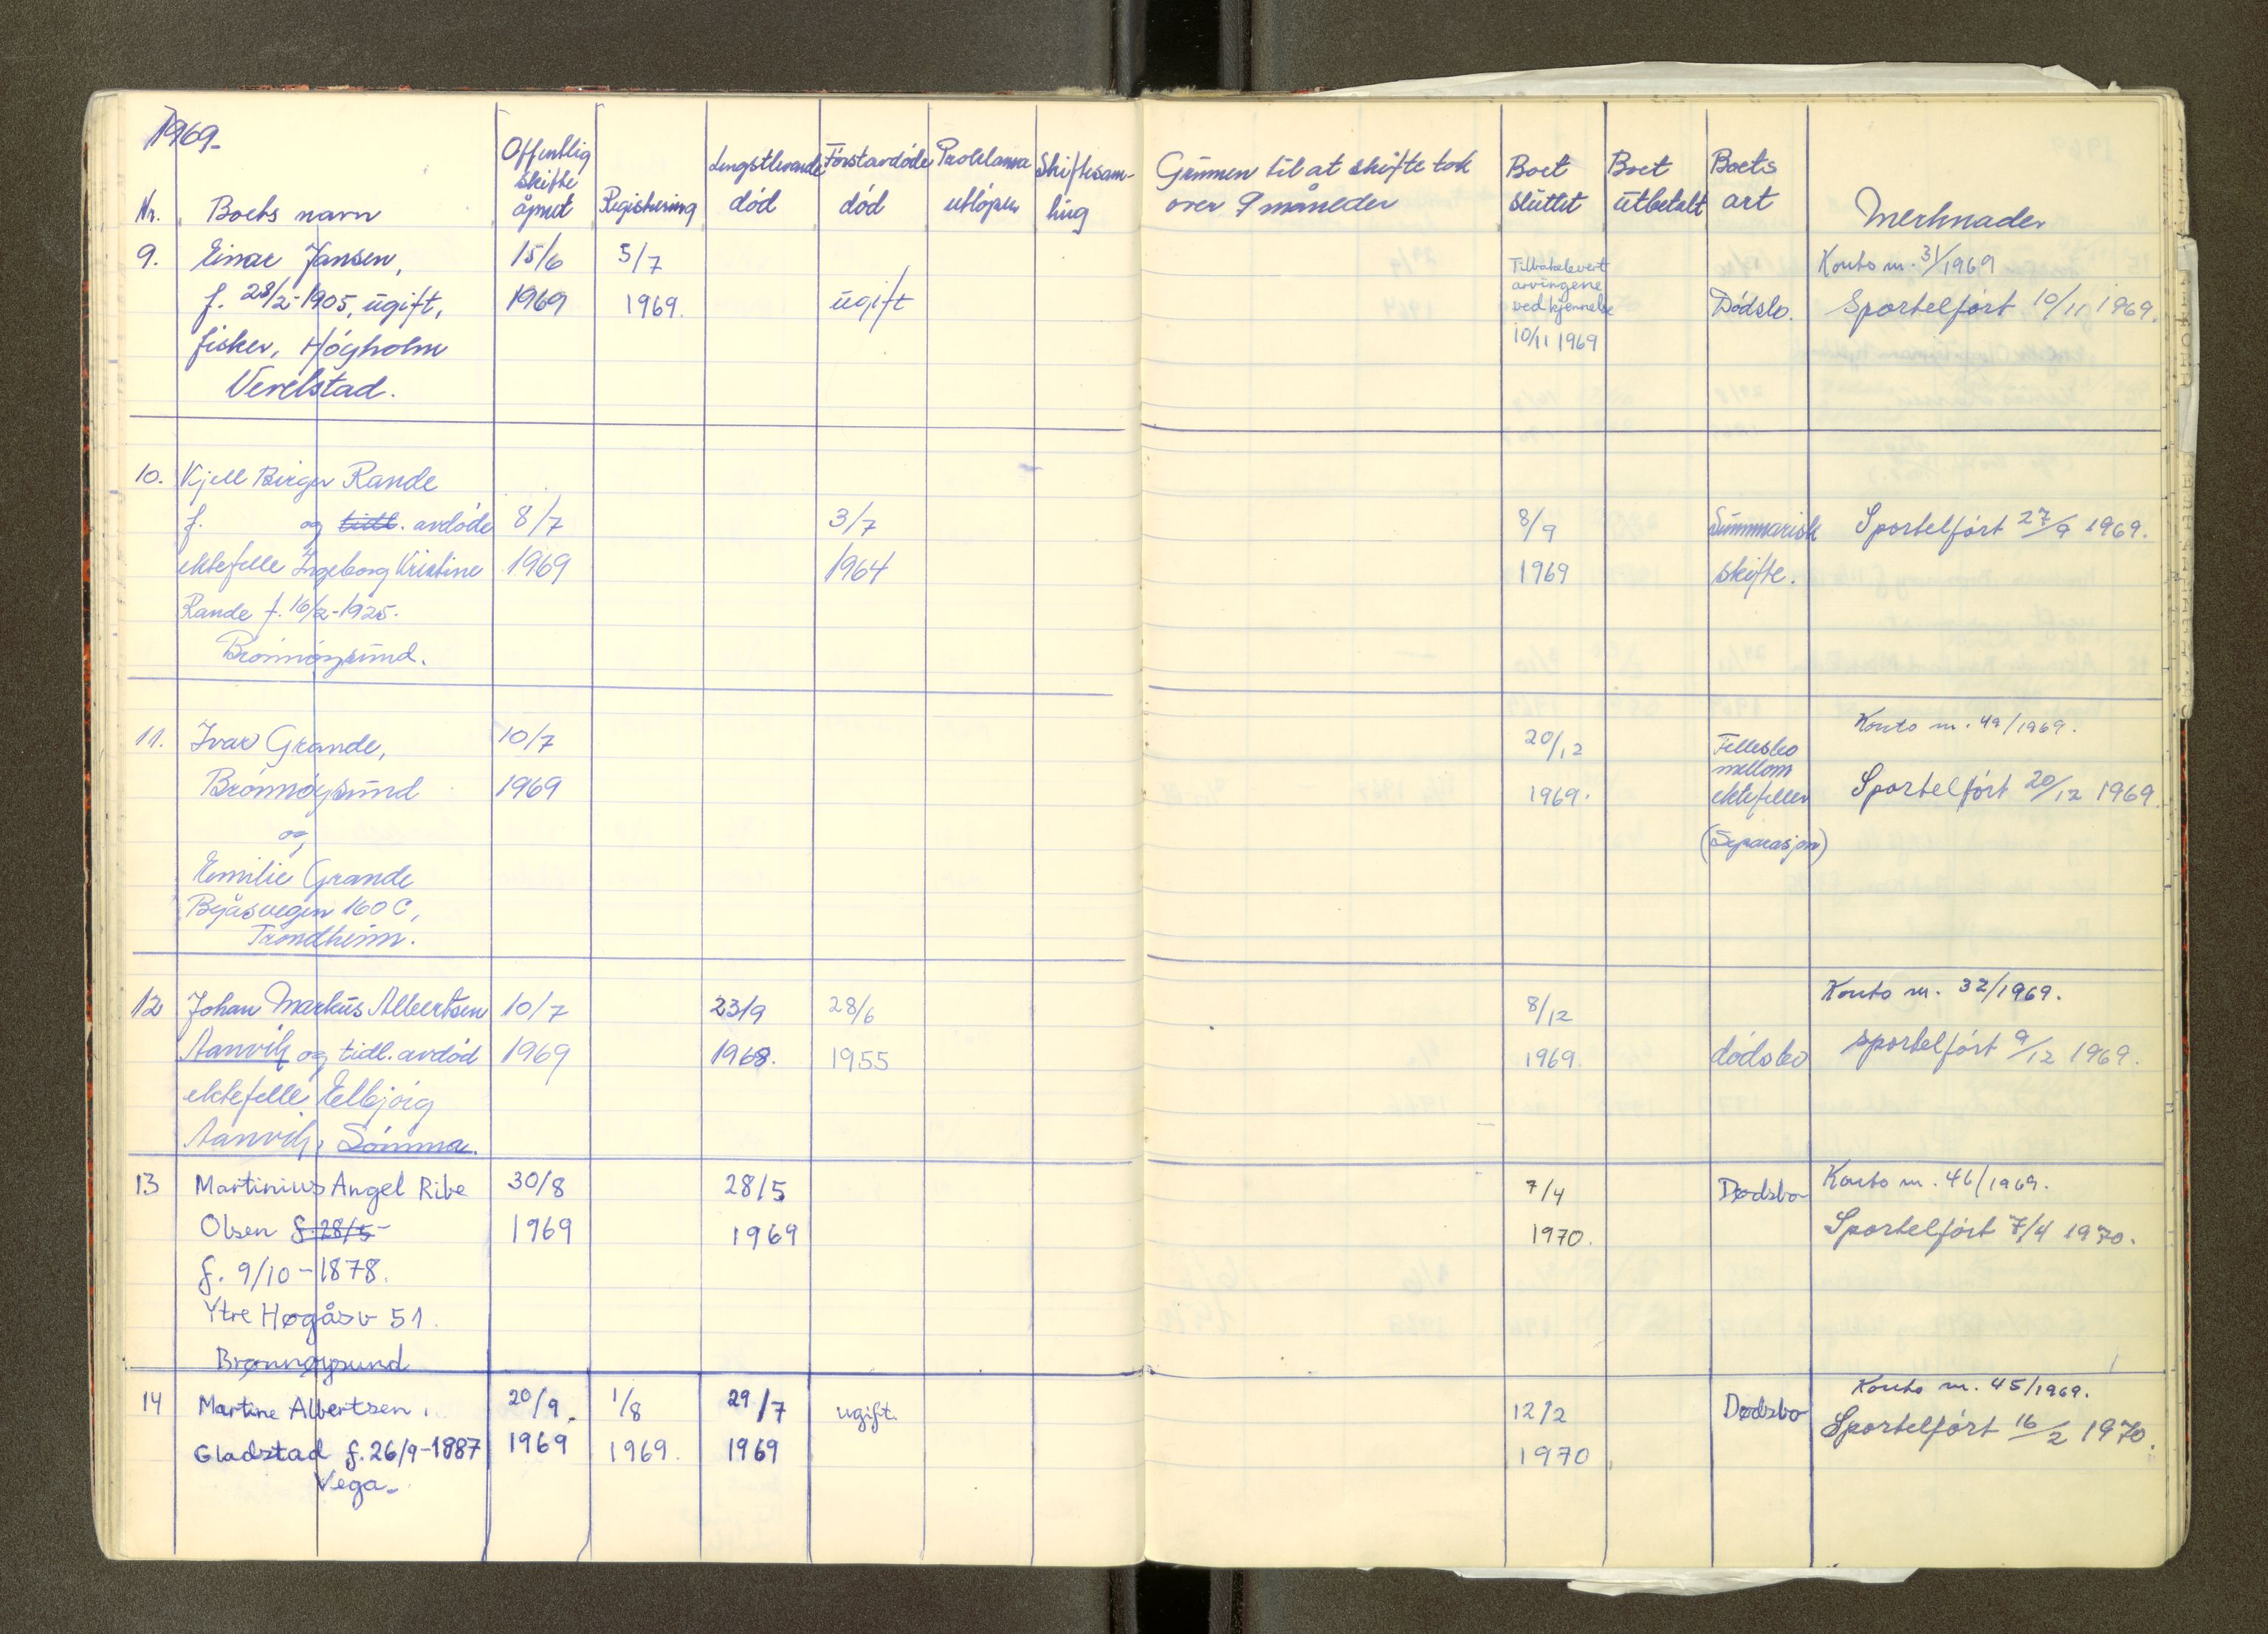 1969.
Nr. Boets navn
Offentlig skifte åpnet
Registrering
Lengstlevende død
Förstavdøde død
Proklama utløper
Skiftesamling
Grunnen til at skifte tok over 9 måneder
Boet sluttet
Boet utbetalt
Boets art
Merknader
9. Einar Jansen, 15/6 5/7 Tilbakelevert Konto nr. 31/1969
f. 28/2-1905, ugift, 1969 1969. ugift arvingene ved kjennelse Dødsbo. Sportelført 10/11 1969.
fisker, Høgholm 10/11 1969
Verelstad.
10. Kjell Birger Rande
f. og tidl. avdøde 8/7 3/7 8/9 Summarisk Sportelført 27/9 1969.
ektefelle Ingeborg Kristine 1969 1964 1969 skifte.
Rande f. 16/2-1925.
Brønnøysund.
11. Ivar Grande, 10/7 20/12 Fellesbo Konto nr. 49/1969.
Brønnøysund 1969 1969. mellom ektefeller Sportelført 20/12 1969.
og (Separasjon)
Emilie Grande
Byåsvegen 160 C,
Trondheim.
12 Johan Markus Albertsen 10/7 23/9 28/6 8/12 Konto nr. 32/1969.
Aanvik og tidl. avdød 1969 1968. 1955 1969. dødsbo sportelført 9/12 1969.
ektefelle Elbjørg
Aanvik, Sømna.
13 Martinius Angel Ribe 30/8 28/5 7/4 Dødsbo Konto nr. 46/1969.
Olsen f 28/5- 1969 1969 1970. Sportelført 7/4 1970.
f. 9/10-1878.
Ytre Høgåsv 51.
Brønnøysund
14 Martine Albertsen, 20/9. 1/8 29/7 ugift. 12/2 Dødsbo Konto nr. 45/1969.
Gladstad f. 26/9-1887 1969 1969. 1969 1970 Sportelført 16/2 1970.
Vega.